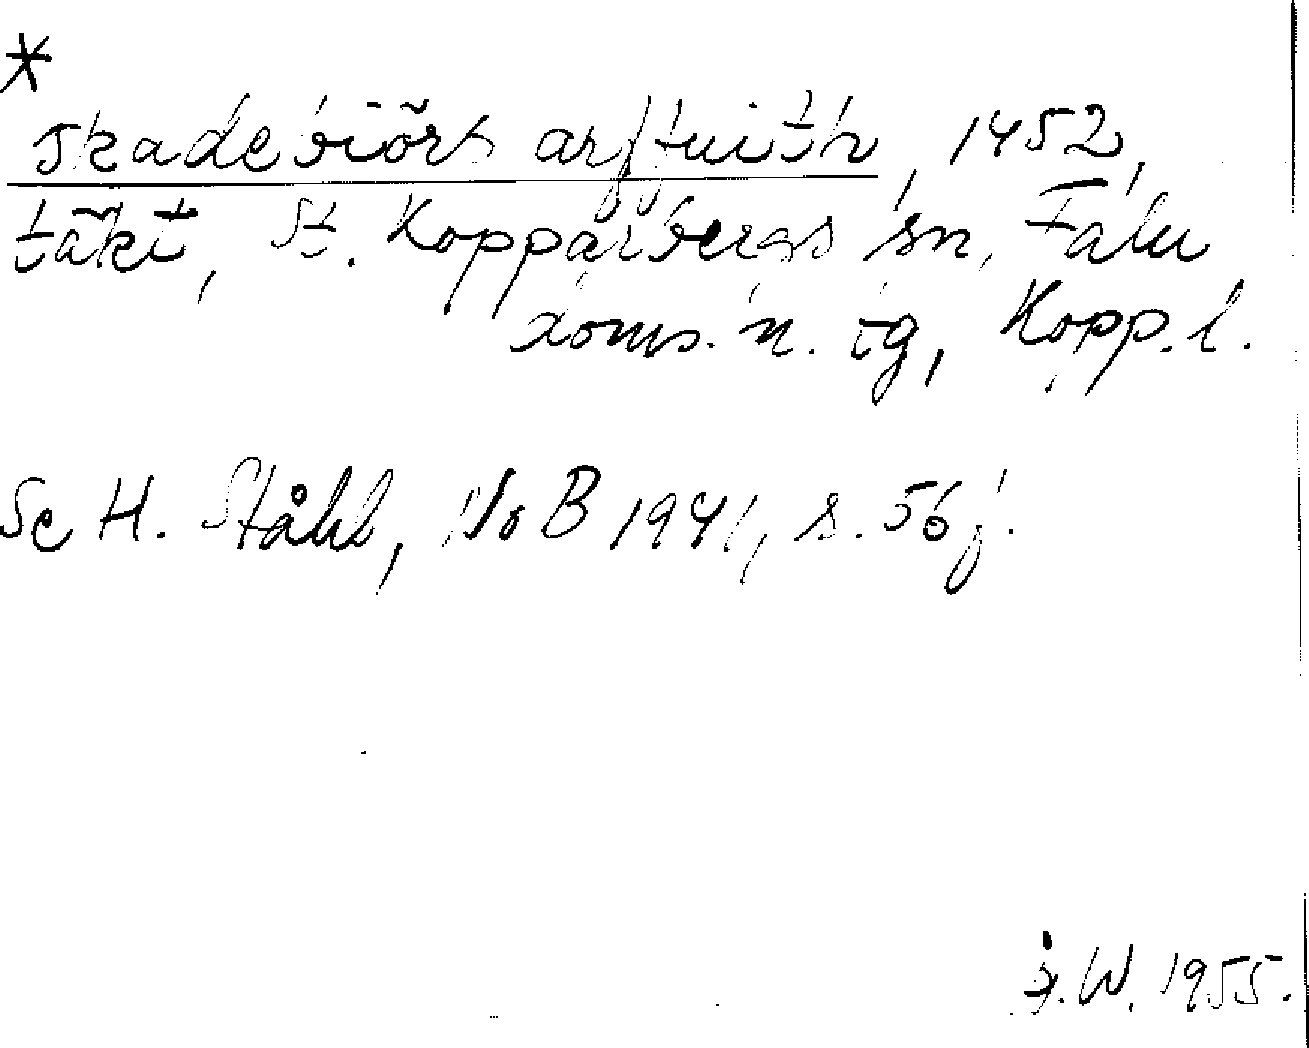 *
skadebiörs arfftuith, 1452,
täkt, St. Kopparbergs sn, Falu
doms. n. tg, Kopp. l.
Se H. Ståhl, NoB 1941, s. 56 f.
W. 1955.